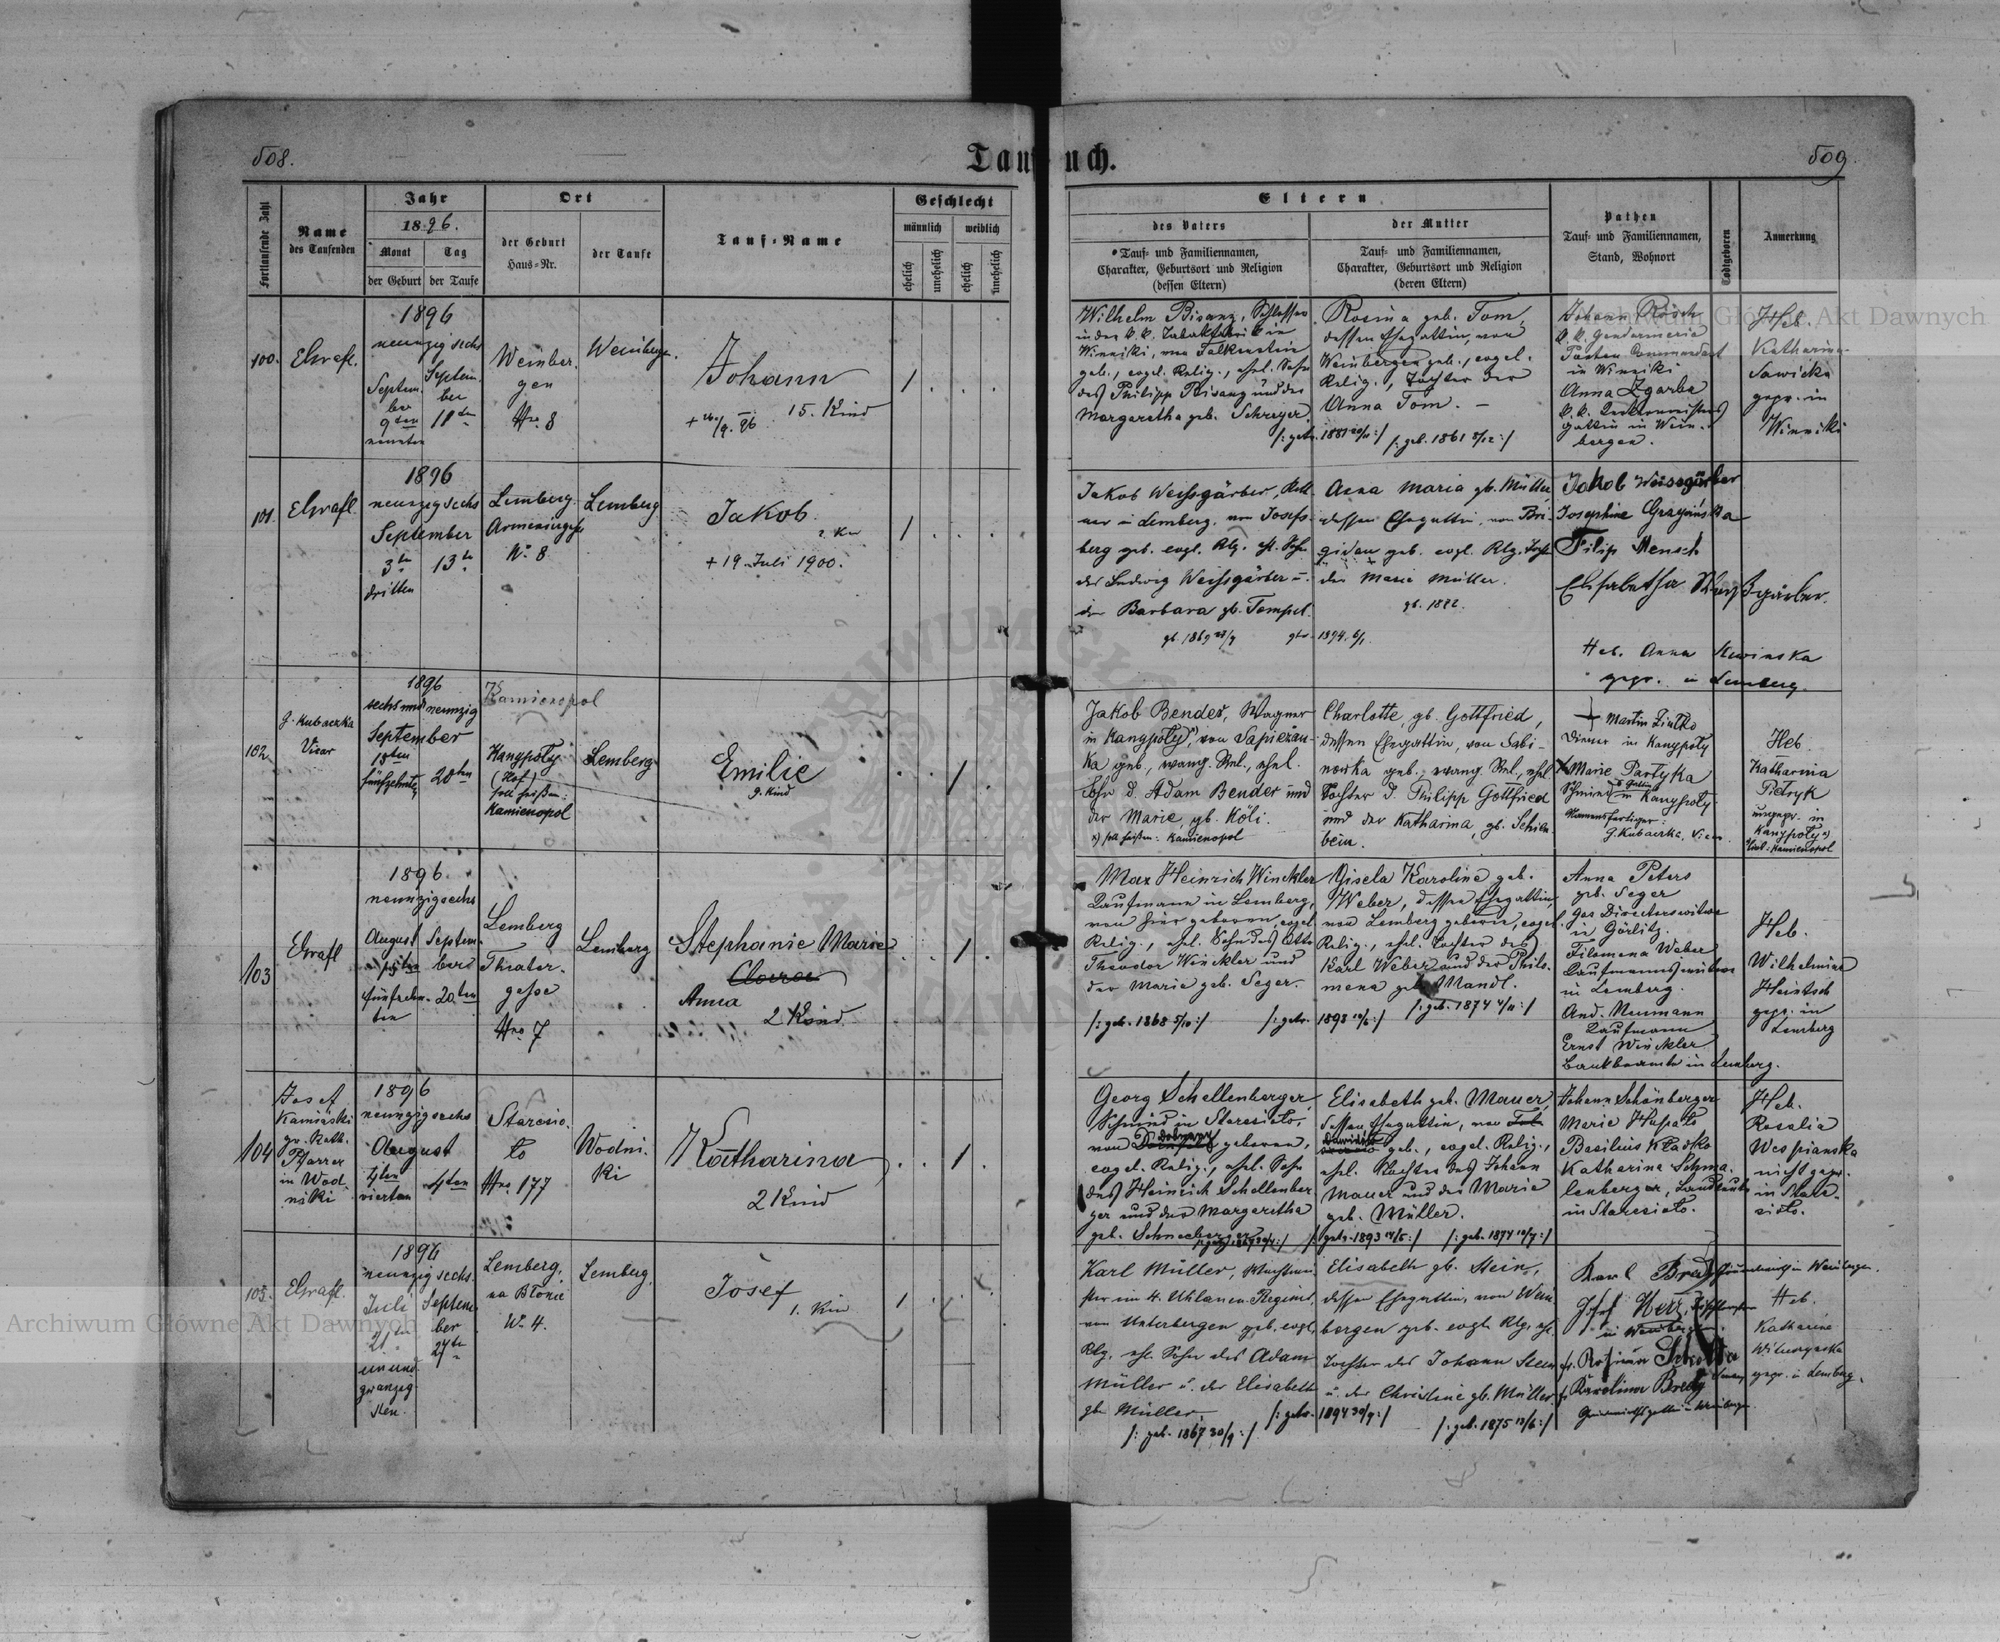 508.
Taufbuch.
509.
Fortlaufende Zahl
Name
des Taufenden
Jahr
1896.
Monat
Tag
der Geburt
der Taufe
Ort
der Geburt
Haus-Nr.
der Taufe
Tauf-Name
Geschlecht
männlich
weiblich
ehelich
unehelich
ehelich
unehelich
Eltern
des Vaters
Tauf- und Familiennamen,
Charakter, Geburtsort und Religion
(dessen Eltern)
der Mutter
Tauf- und Familiennamen,
Charakter, Geburtsort und Religion
(deren Eltern)
Pathen
Tauf- und Familiennamen,
Stand, Wohnort
Todtgeboren
Anmerkung
100.
1896
neunzig sechs
Septem-
ber
9ten
neunten
Septem-
ber
11ten
Weinber-
gen
Nro. 8
Weinbergen.
Johann
15. Kind
1
Wilhelm Bisanz, Schlosser
in der k. k. Tabakfabrik in
Winniki, von Falkenstein
geb., evgel. Relig., ehel. Sohn
des Philipp Bisanz und der
Margaretha geb. Schreyer
Rosina geb. Tom,
dessen Ehegattin, von
Weinbergen geb., evgel.
Relig., Tochter der
Anna Tom. —
/: geb. 1861 :/
Johann Rösch
k. k. Gendarmerie
Posten Commandant
in Winniki
Anna Zgarba
gattin in Wein-
bergen.
Heb.
Katharina
Sawicka
gepr. in
Winniki
101.
1896
neunzig sechs
September
3ten
13ten
dritten
Lemberg
Nº 8
Lemberg
Jakob
+ 19. Juli 1900.
1
Jakob Weissgärber,
in Lemberg, von Josefs-
berg geb. evgl. Rlg. ehl. Sohn
des Ludwig Weissgärber u.
der Barbara gb. Tempel
Anna Maria gb. Müller,
dessen Ehegattin, von Bri-
gidau geb. evgl. Rlg. Tochter
der Maria Müller.
gb. 1872.
Jakob Weissgärber
Josephine
Filip Mensch
Elisabetha Weißgärber.
Heb. Anna
gepr. in Lemberg.
102.
G. Kubaczka
Vicar
1896
sechs und neunzig
September
15ten
fünfzehnten
20ten
Kamienopol
Kanypoly
(Hof)
soll heißen:
Kamienopol
Lemberg
Emilie
9. Kind
1
Jakob Bender, Wagner
in Kanypoly*), von Sapiezan-
ka geb., evang. Rel., ehel.
Sohn d. Adam Bender und
der Marie, gb. Köli.
*) soll heißen: Kamienopol
Charlotte, gb. Gottfried,
dessen Ehegattin, von Sabi-
nowka geb., evang. Rel., ehel.
Tochter d. Philipp Gottfried
und der Katharina, gb. Schien-
bein.
Martin Zintko
Diener in Kanypoly
Marie Partyka
Schmieds Gattin in Kanypoly
Namensfertiger:
G. Kubaczka, Vicar.
Heb.
Katharina
Pietryk
ungepr. in
Kanypoly*)
*) soll: Kamienopol
103
1896.
neunzigsechs
August
15ten
fünfzehn-
ten
Septem-
ber
20ten
Lemberg
Theater-
gasse
Nro 7
Lemberg
Stephanie Marie
Anna
2 Kind
1
Max Heinrich Winckler
Kaufmann in Lemberg,
von hier geboren, evgel.
Relig., ehel. Sohn des Otto
Theodor Winckler und
der Marie geb. Seger.
/: geb. 1868 5/10 :/
Gisela Karoline geb.
Weber, dessen Ehegattin,
von Lemberg geboren, evgel.
Relig., ehel. Tochter des
Karl Weber und der Philo-
mena geb. Mandl.
/: geb. 1874 4/11 :/
Anna Peters
geb. Seger
Gas Directorswitwe
in Görlitz.
Filomena Weber
Kaufmannswitwe
in Lemberg.
And. Neumann
Kaufmann
Ernst Winckler
Bankbeamte in Lemberg.
Heb.
Wilhelmine
Heintsch
gepr. in
Lemberg
104
Josef
Kamiński
gr. Kath.
Pfarrer
in Wod-
niki
1896
neunzigsechs
August
4ten
vierten
Staresio-
lo
Nro 177
Wodni-
ki
Katharina
2 Kind
1
Georg Schellenberger,
Schmied in Staresiolo,
von Dobrzany geboren,
evgel. Relig., ehel. Sohn
des Heinrich Schellenber-
ger und der Margaretha
geb. Schneeberger
Elisabeth geb. Mauer,
dessen Ehegattin, von
geb., evgel. Relig.,
ehel. Tochter des Johann
Mauer und der Marie
geb. Müller.
/: getr. 1893 14/5 :/
/: geb. 1874 10/7 :/
Johann Schönberger
Marie Hupalo
Basilius Kladko
Katharina Schma-
lenberger, Landleute
in Staresiolo.
Heb.
Rosalia
Wespianska
nicht gepr.
in Stare-
siolo.
105.
1896
neunzig sechs.
Juli
21ten
ein und
zwanzig-
sten.
Septem-
ber
27ten
Lemberg,
na Błonie
Nº 4.
Lemberg
Josef
1. Kin
1
Karl Müller, Wachtmei-
ster im 4. Uhlanen Regiment,
von Unterbergen geb. evgl.
Rlg. ehl. Sohn des Adam
Müller u. der Elisabeth
gb. Müller
/: geb. 1867 30/9 :/
/: getr. 1894 30/9 :/
Elisabeth gb. Stein,
dessen Ehegattin, von Wein-
bergen geb. evgl. Rlg. ehl.
Tochter des Johann Stein
u. der Christine gb. Müller
/: geb. 1875 13/6 :/
Karl Bredy Grundwirth in Weinbergen.
Josef Herz
in Weinbergen
Karolina Bredy
Heb.
Katharine
gepr. in Lemberg.
Archiwum Główne Akt Dawnych
Archiwum Główne Akt Dawnych